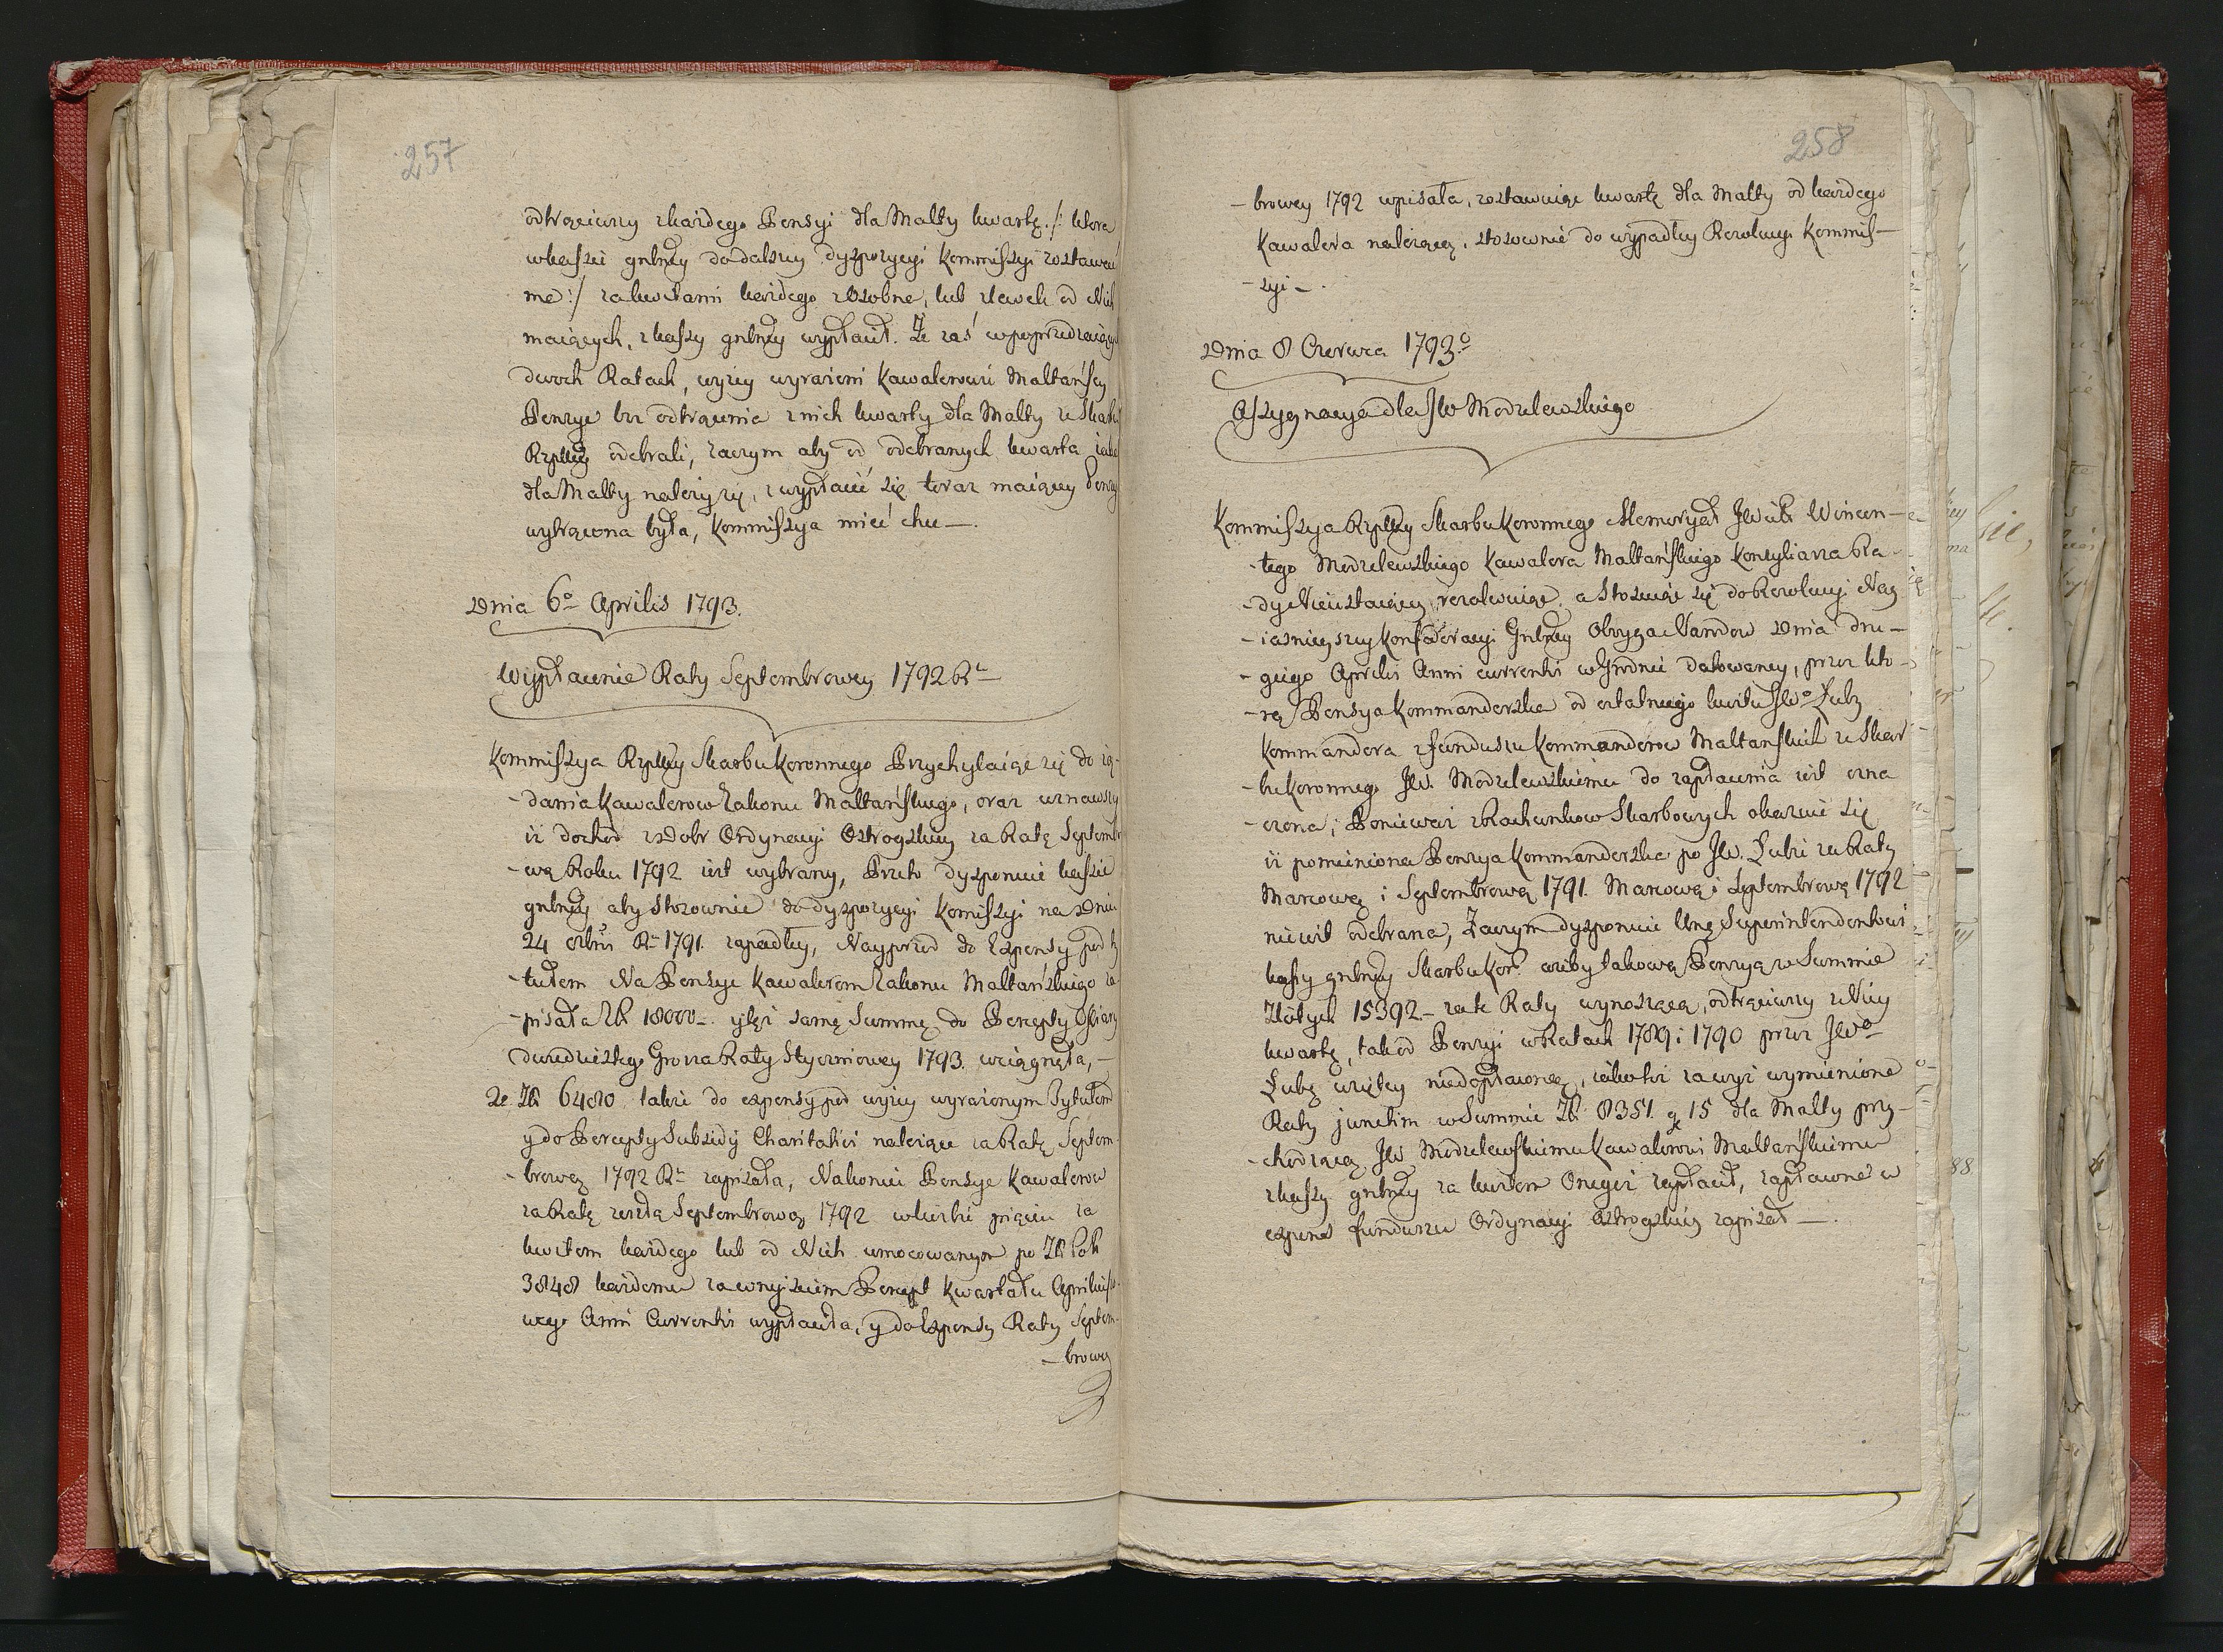 257
odtrąciwszy z każdego Pensyi dla Malty kwartę /: ktora
w kassie gnlney do dalszey dyspozycyi Kommissyi zostawać
ma :/ za kwitami każdego z osobna, lub zlecek od Nich
maiących, z kassy gnlney wypłacił. Ze zaś w poprzedzaiących
dwoch Ratach, wyżey wyrażeni Kawalerowie Maltańscy
Pensye bez odtrącenia z nich kwarty dla Malty ze Skarbu
Rzpltey odebrali, zaczym aby od odebranych kwarta iako
dla Malty należąca, z wypłacić się teraz maiącey Pensyi
wytrącona była, Kommissya mieć chce —.
Dnia 6o Aprilis 1793.
Wypłacenie Raty Septembrowey 1792 Ru
Kommissya Rzpltey Skarbu Koronnego Przychylaiąc się do żą-
-dania Kawalerow Zakonu Maltańskiego, oraz uznawszy
iż dochod z Dobr Ordynacyi Ostrogskiey za Ratę Septembro
-wą Roku 1792 iest wybrany, Przeto dysponuie kassie
gnlney aby stosownie do dyspozycyi Komissyi na Dniu
24 Ru 1791. zapadłey, Nayprzod do Expensy pod ty
-tułem Na Pensye Kawalerom Zakonu Maltańskiego za
-pisała Zł 18000 –. y tęż samę Summę do Percepty Ofiary
dwudziestego Grosza Raty Styczniowey 1793. wciągnęła, —
2e. Zł 6480 także do expensy pod wyżey wyrażonym Tytułem
y do Percepty Subsidij Charitativi należące za Ratę Septem-
-brową 1792 Ru zapisała, Nakoniec Pensye Kawalerow
za Ratę zeszłą Septembrową 1792 w liczbie pięciu za
kwitem każdego lub od Nich umocowanych po Zł Pols
3848 każdemu zawnyiściem Percept Kwartału Aprilisso-
wego Anni Currentis wypłaciła, y do Expensy Raty Septem-
- browey
258
- browey 1792 wpisała, zostawuiąc kwartę dla Malty od każdego
Kawalera należącą, stosownie do wypadłey Rezolucyi Kommis-
- syi –.
Dnia 8 Czerwca 1793.o
Assygnacya dla JW Modzelewskiego
Kommissya Rzpltey Skarbu Koronnego Memoryał JW Wincen-
-tego Modzelewskiego Kawalera Maltańskiego Konsyliarza Ra-
-dy Nieustaiącey rezolwuiąc, a stosuiąc się do Rezolucyi Nay
- iaśnieyszey Konfederacyi Gnlney Oboyga Narodow Dnia dru-
- giego Aprilis Anni currentis w Grodnie datowaney, przez kto-
-rą Pensya Kommanderska od ostatniego kwitu JWo Zuby
Kommandora z funduszu Kommanderow Maltańskich w Skar
-bu Koronnego JW. Modzelewskiemu do zapłacenia iest ozna
-czona; Ponieważ z Rachunkow Skarbowych okazuie się
iż pomieniona Pensya Kommanderska po JW. Zubi za Raty
Marcową i Septembrową 1791. Marcową i Septembrową 1792
nie iest odebrana, Zaczym dysponuie Superintendentowi
kassy gnlney Skarbu Kor. ażeby takową Pensyą w Summie
Złotych 15392.– za 4e Raty wynoszącą, odtrąciwszy z Niey
kwartę, tak od Pensyi w Ratach 1789 i 1790 przez JWo
Zubę wziętey niedopłaconą, iako też za wyż wymienione
Raty junctim w Summie Zł. 8351. g 15 dla Malty przy-
-chodzącą JW Modzelewskiemu Kawalerowi Maltańskiemu
z kassy gnlney za kwitem Onegoż zapłacił, zapłacone w
expens funduszu Ordynacyi Ostrogskiey zapisał —.